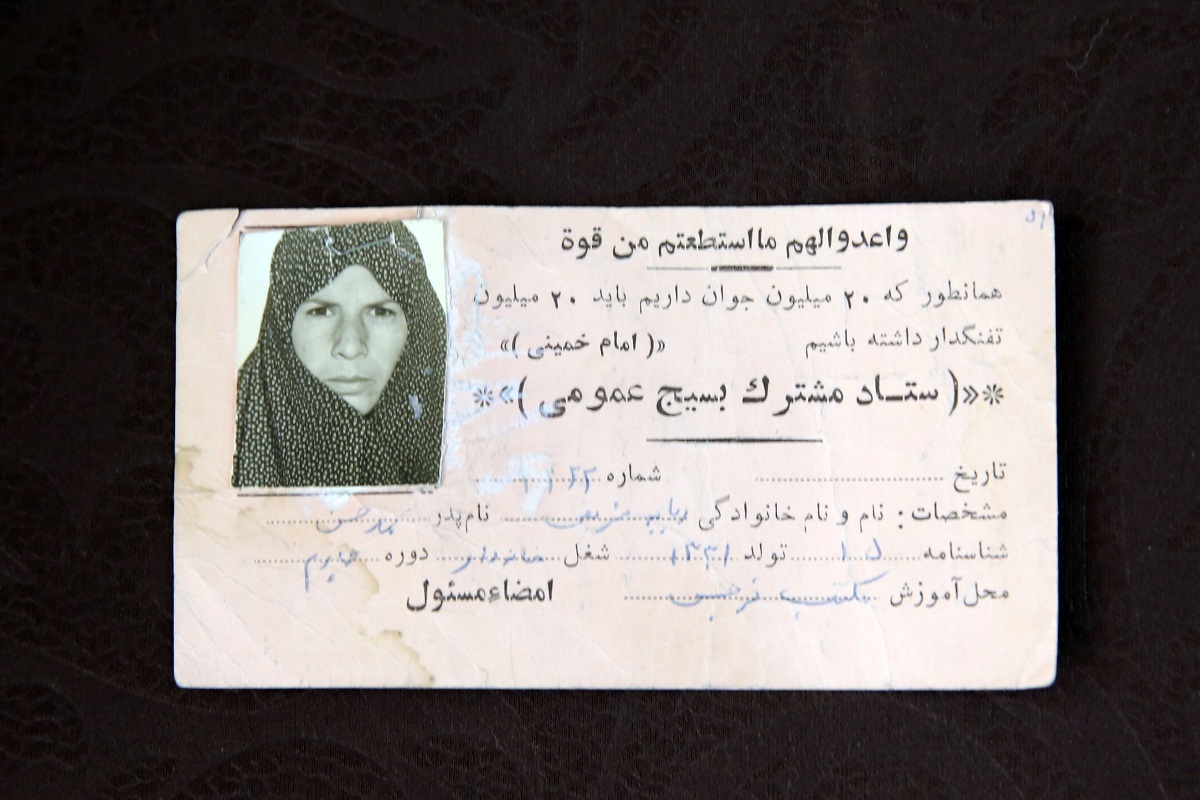 واعدوالهم مااستطعتم من قوة
همانطور که ۲۰ میلیون جوان داریم باید ۲۰ میلیون
تفنگدار داشته باشیم »( امام خمینی )«
*»( ستاد مشترك بسیج عمومی )«*
تاریخ شماره
مشخصات: نام و نام خانوادگی نام‌پدر
شناسنامه تولد ۱۳۳۱ شغل خانه‌دار دوره
محل‌آموزش مکتب نرجس امضاءمسئول